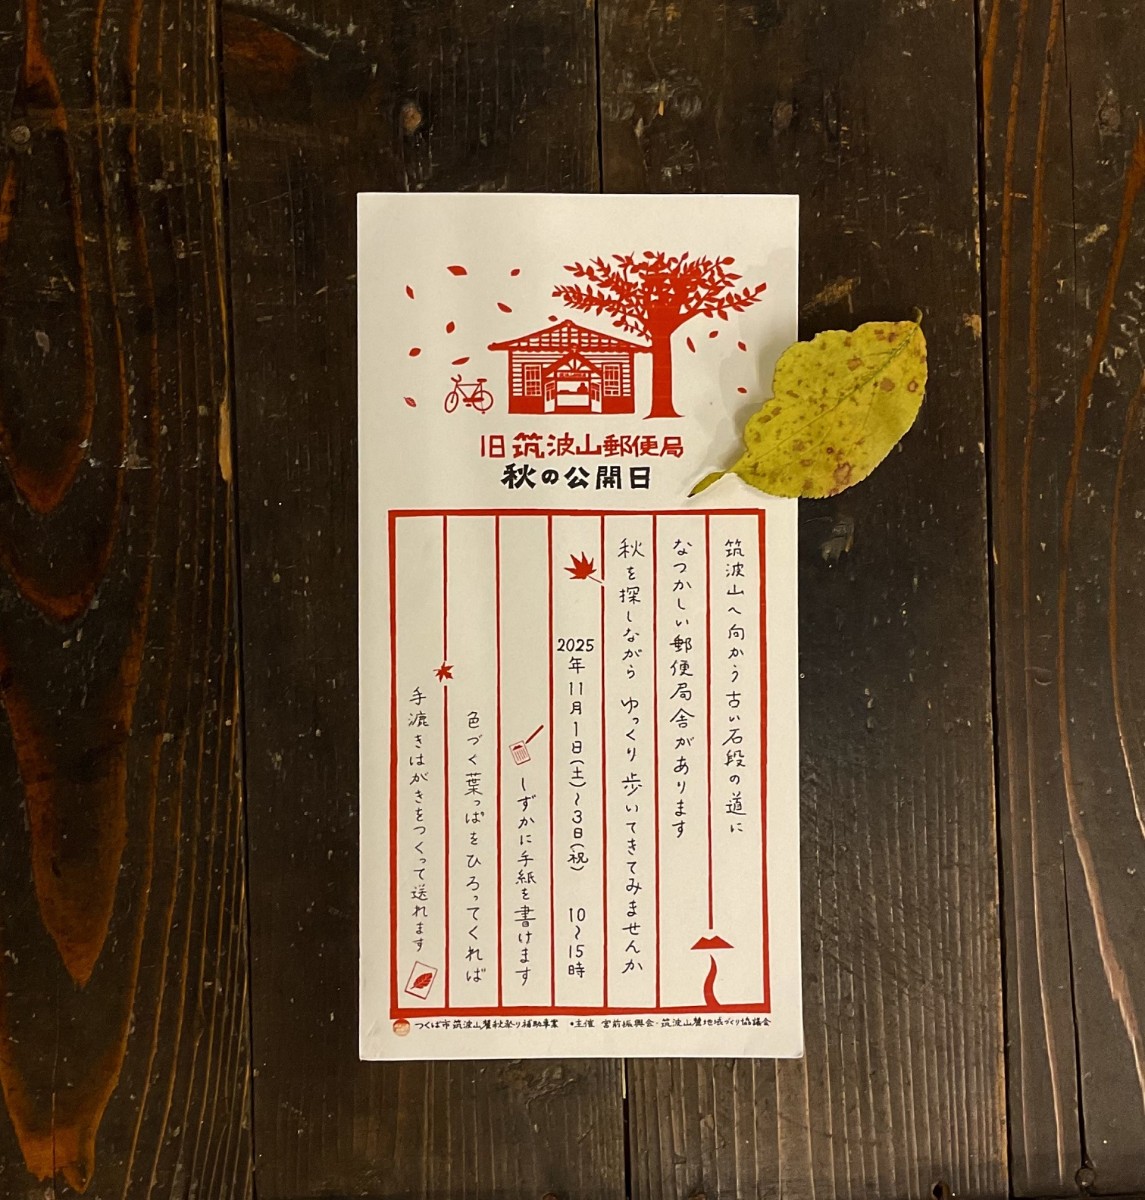 旧筑波山郵便局
秋の公開日
筑波山へ向かう古い石段の道に
なつかしい郵便局舎があります
秋を探しながら ゆっくり歩いてきてみませんか
2025年11月1日(土)~3日(祝) 10~15時
しずかに手紙を書けます
色づく葉っぱをひろってくれば
手漉きはがきをつくって送れます
つくば市筑波山麓秋祭り補助事業 •主催 宮前振興会・筑波山麓地域づくり協議会